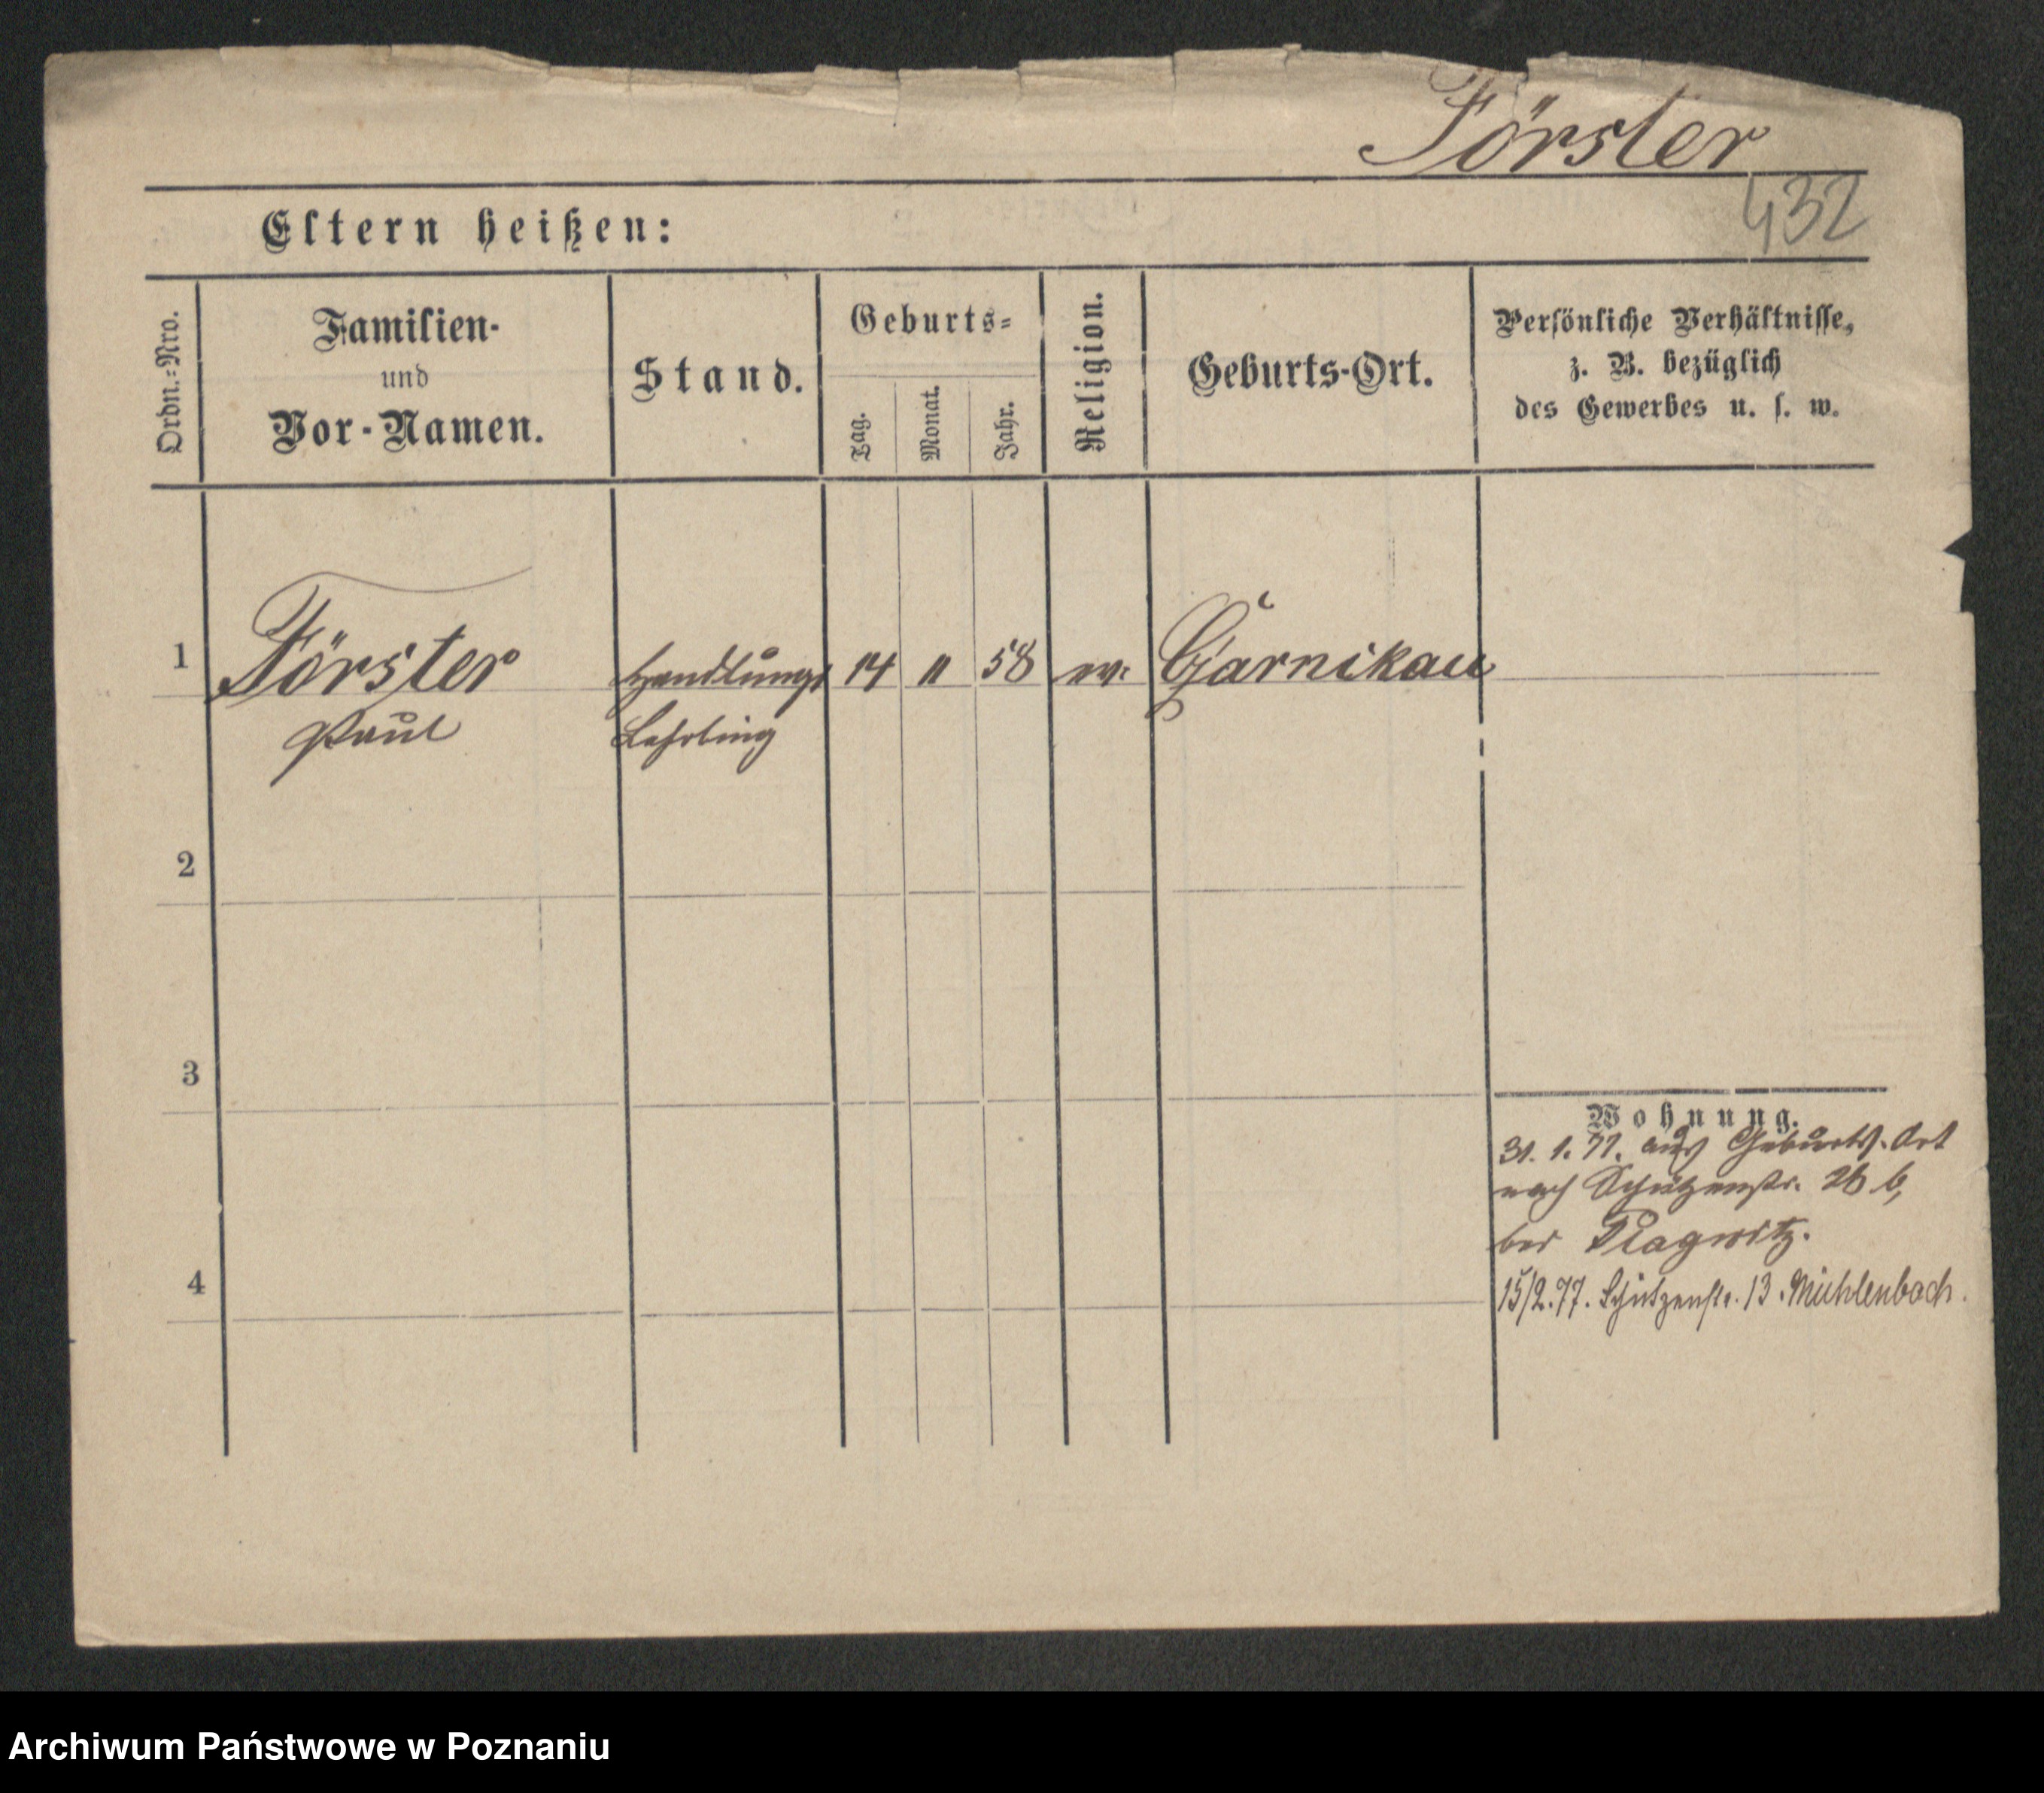 Förster
432
Eltern heißen:
Ordn.-Nro.
Familien-
und
Vor-Namen.
Stand.
Geburts-
Tag.
Monat.
Jahr.
Religion.
Geburts-Ort.
Persönliche Verhältnisse,
z. B. bezüglich
des Gewerbes u. s. w.
1 Förster Handlungs 14 11 58 ev. Czarnikau
Paul Lehrling
2
3
4
Wohnung.
31. 1. 77. aus Geburts-Ort
nach Schützenstr. 26 b,
bei
15/2.77. Schützenstr. 13. Mühlenbach.
Archiwum Państwowe w Poznaniu